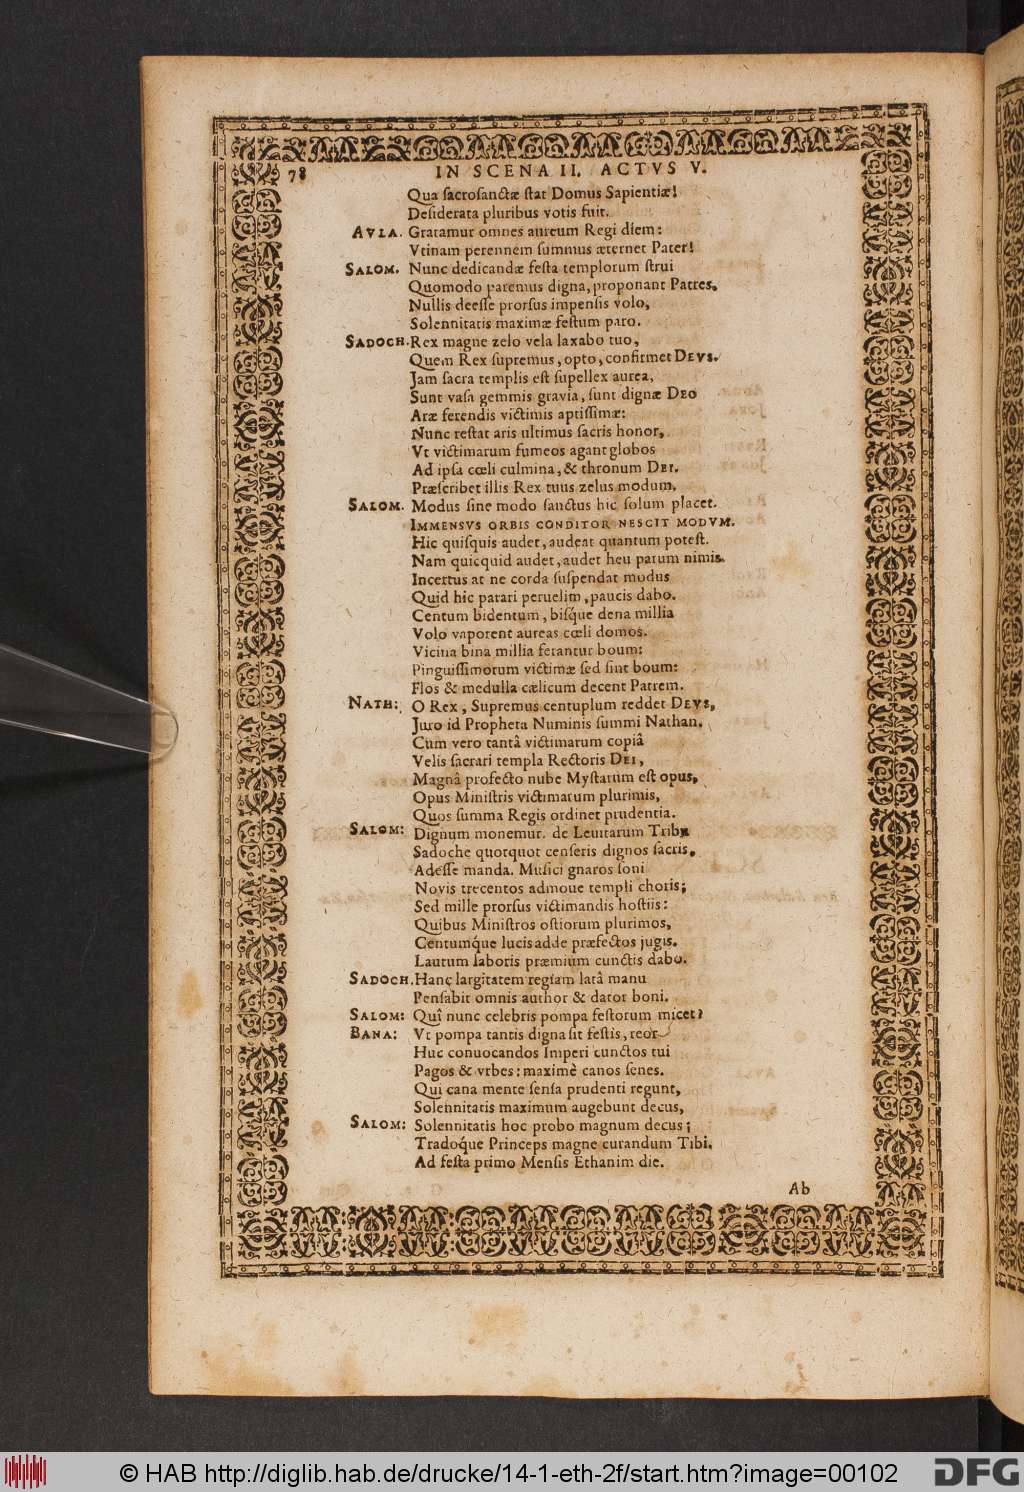 78 IN SCENA II. ACTVS V.
Qua sacrosanctæ stat Domus Sapientiæ!
Desiderata pluribus votis fuit.
AVLA. Gratamur omnes aureum Regi diem:
Vtinam perennem summus æternet Pater!
SALOM. Nunc dedicandæ festa templorum strui
Quomodo paremus digna, proponant Patres,
Nullis deesse prorsus impensis volo,
Solennitatis maximæ festum paro.
SADOCH. Rex magne zelo vela laxabo tuo,
Quem Rex supremus, opto, confirmet DEVS.
Jam sacra templis est supellex aurea,
Sunt vasa gemmis gravia, sunt dignæ DEO
Aræ ferendis victimis aptissimæ:
Nunc restat aris ultimus sacris honor,
Vt victimarum fumeos agant globos
Ad ipsa cœli culmina, & thronum DEI.
Præscribet illis Rex tuus zelus modum,
SALOM. Modus sine modo sanctus hic solum placet.
IMMENSVS ORBIS CONDITOR NESCIT MODVM.
Hic quisquis audet, audeat quantum potest.
Nam quicquid audet, audet heu parum nimis.
Incertus at ne corda suspendat modus
Quid hic parari peruelim, paucis dabo.
Centum bidentum, bisq́ue dena millia
Volo vaporent aureas cœli domos.
Vicina bina millia ferantur boum:
Pinguissimorum victimæ sed sint boum:
Flos & medulla cælicum decent Patrem.
NATH: O Rex, Supremus centuplum reddet DEVS,
Juro id Propheta Numinis summi Nathan.
Cum vero tantâ victimarum copiâ
Velis sacrari templa Rectoris DEI,
Magnâ profecto nube Mystarum est opus,
Opus Ministris victimarum plurimis,
Quos summa Regis ordinet prudentia.
SALOM: Dignum monemur. de Leuitarum Tribu
Sadoche quotquot censeris dignos sacris,
Adesse manda. Musici gnaros soni
Novis trecentos admoue templi choris;
Sed mille prorsus victimandis hostiis:
Quibus Ministros ostiorum plurimos,
Centumq́ue lucis adde præfectos jugis.
Lautum laboris præmium cunctis dabo.
SADOCH. Hanc largitatem regiam latâ manu
Pensabit omnis author & dator boni.
SALOM: Quî nunc celebris pompa festorum micet?
BANA: Vt pompa tantis digna sit festis, reor
Huc conuocandos Imperî cunctos tui
Pagos & vrbes: maximè canos senes.
Qui cana mente sensa prudenti regunt,
Solennitatis maximum augebunt decus,
SALOM: Solennitatis hoc probo magnum decus;
Tradoq́ue Princeps magne curandum Tibi.
Ad festa primo Mensis Ethanim die.
Ab
© HAB http://diglib.hab.de/drucke/14-1-eth-2f/start.htm?image=00102
DFG